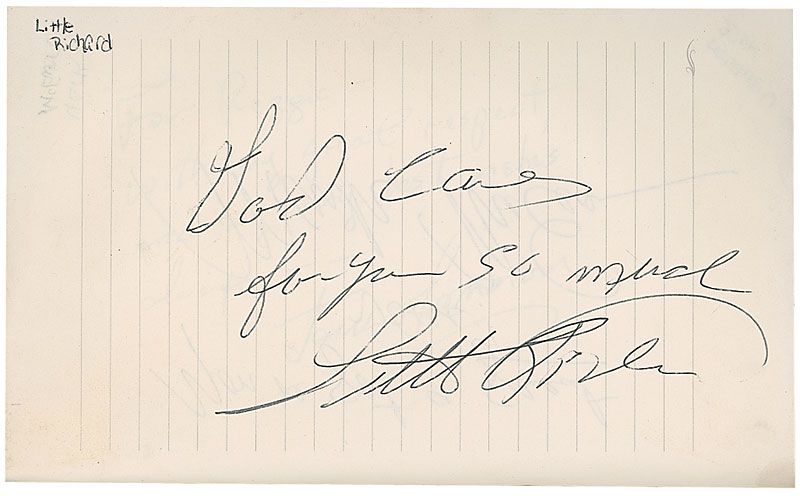 Little
Richard
God Cares
for you so much
Little Richard